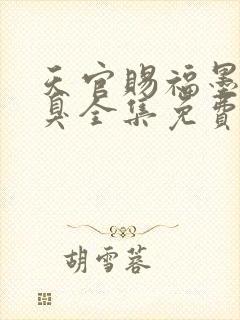 天官赐福墨
臭全集免费
胡雪蓉